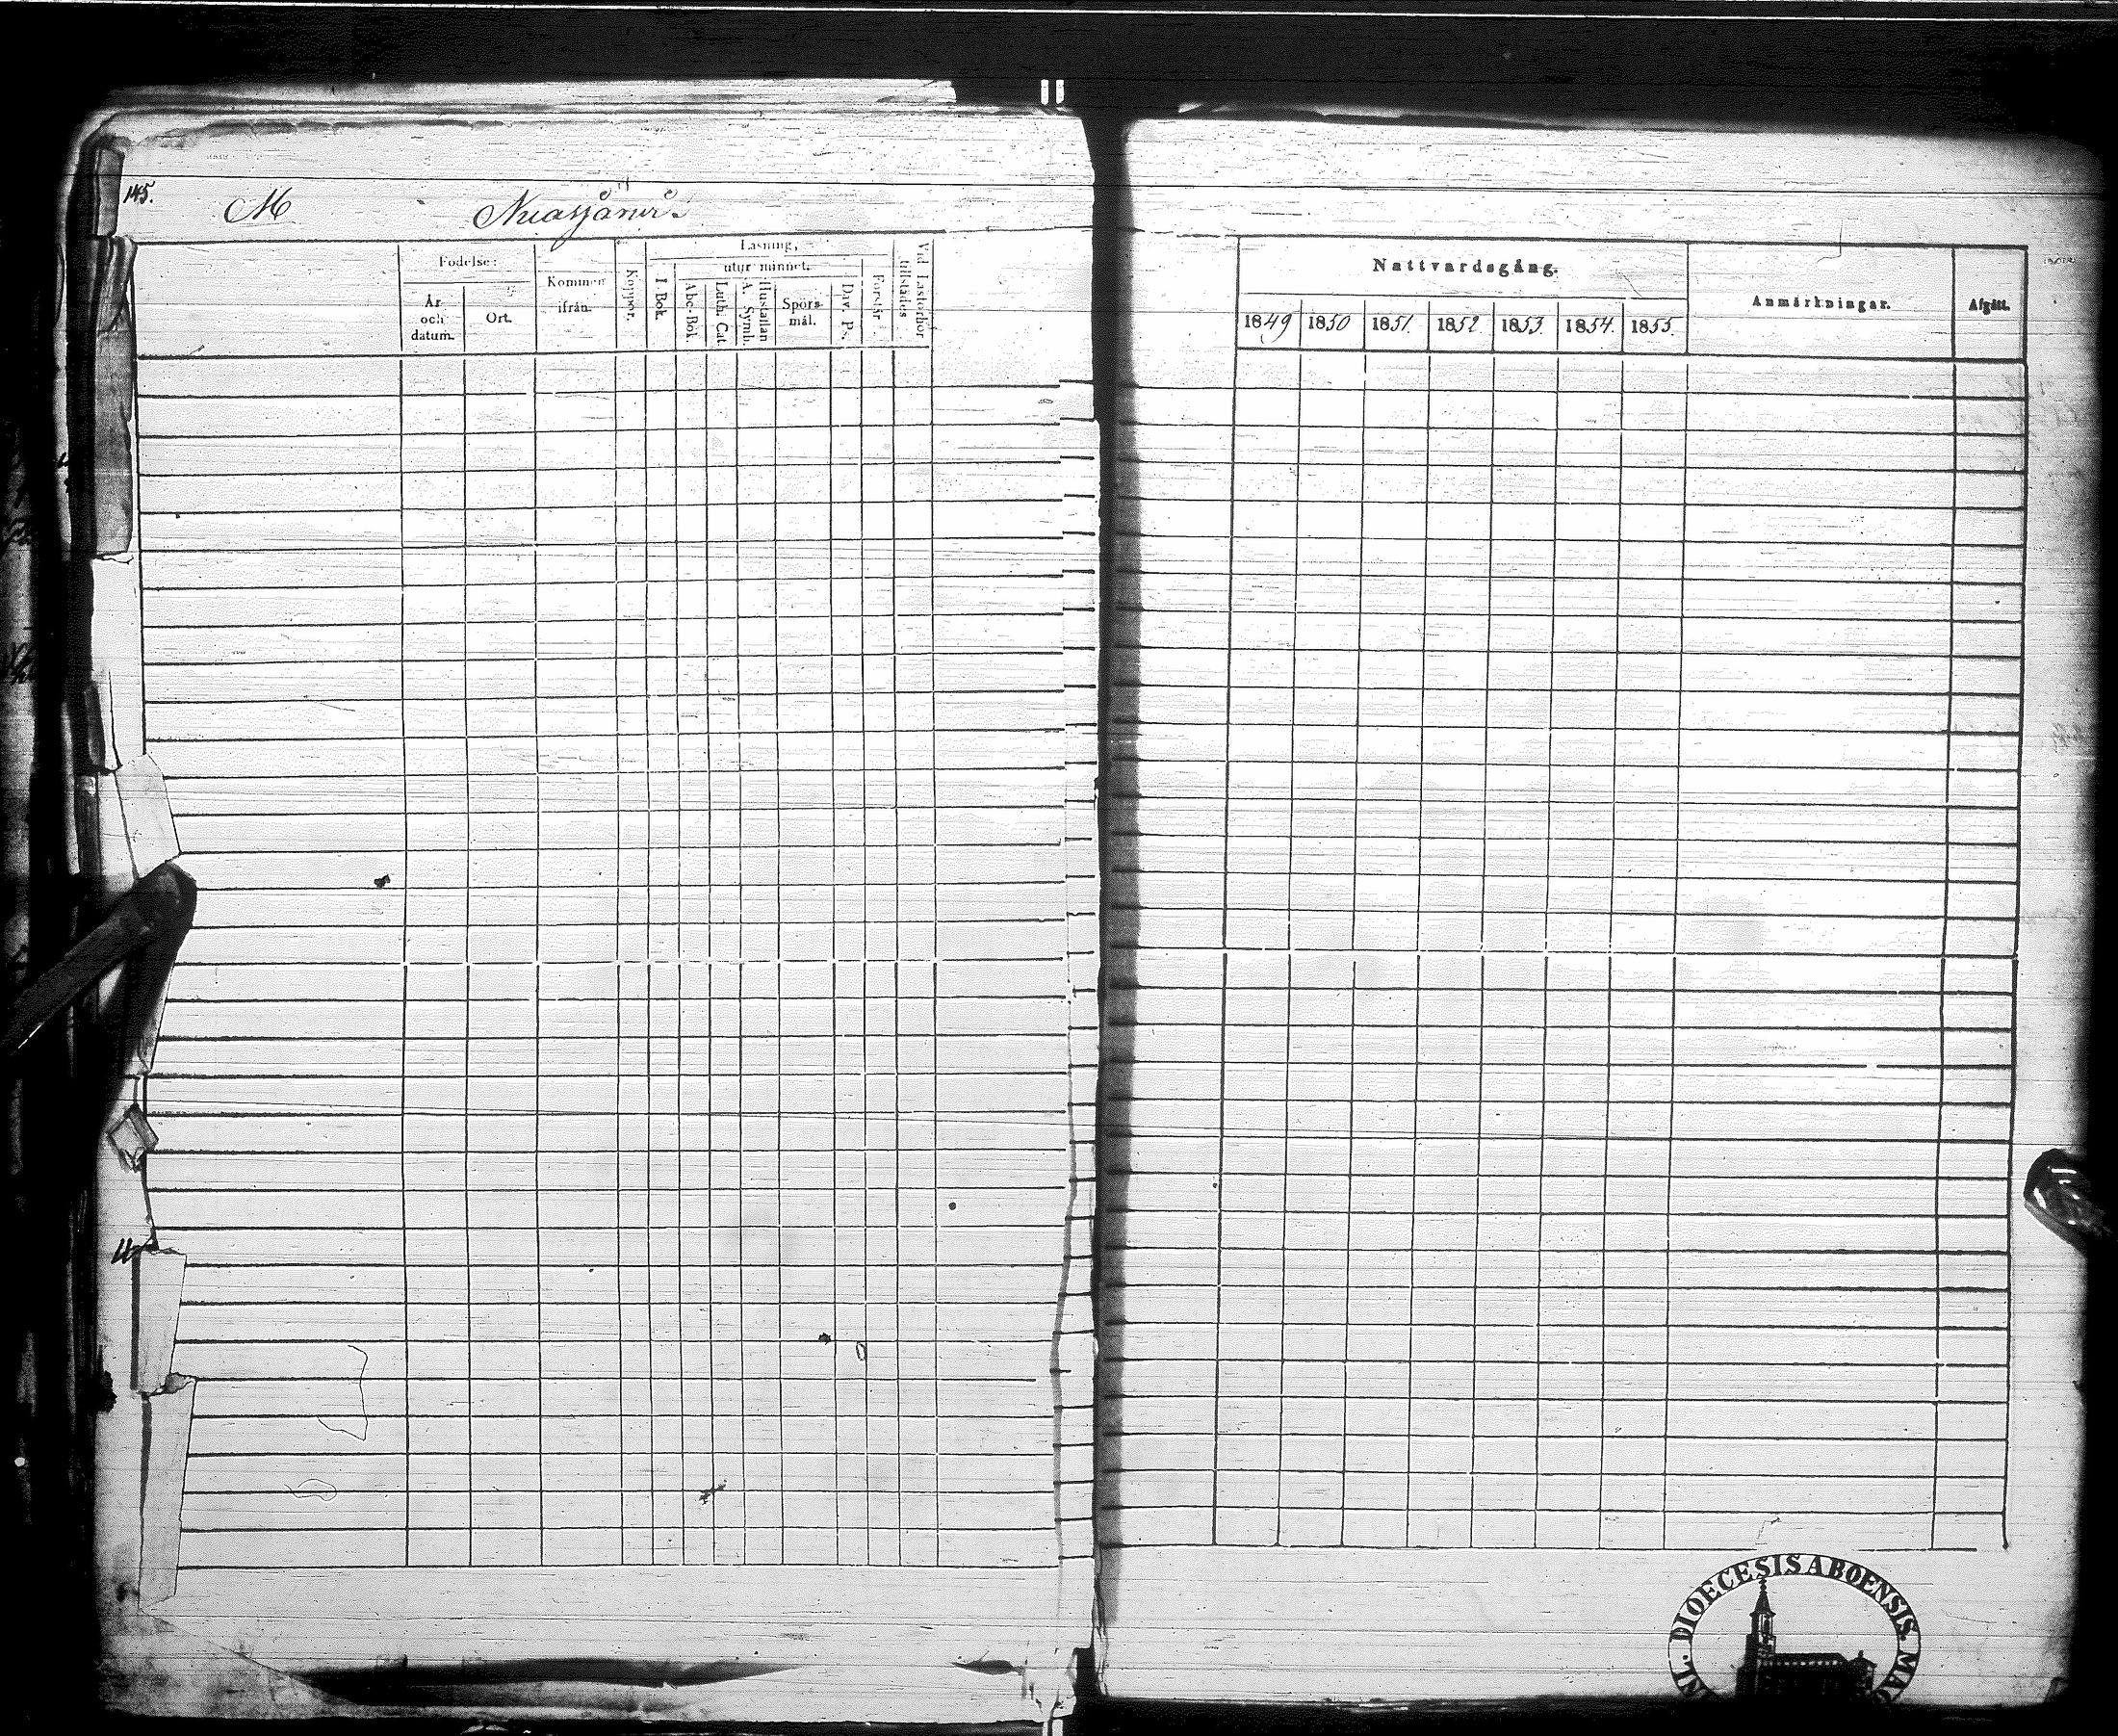 145.
M
Födelse:
År och datum.
Ort.
Kommen ifrån.
Koppor.
Läsning,
I. Bok.
utur minnet.
Abc-Bok.
Luth. Cat.
A. Symb. Hustaflan
Spörsmål.
Dav. Ps.
Förstår.
Vid Läsförhör tillstädes
Nattvardsgång.
1849 1850 1851. 1852 1853. 1854. 1855.
Anmärkningar.
Afgått.
DIOECESIS ABOENSIS.